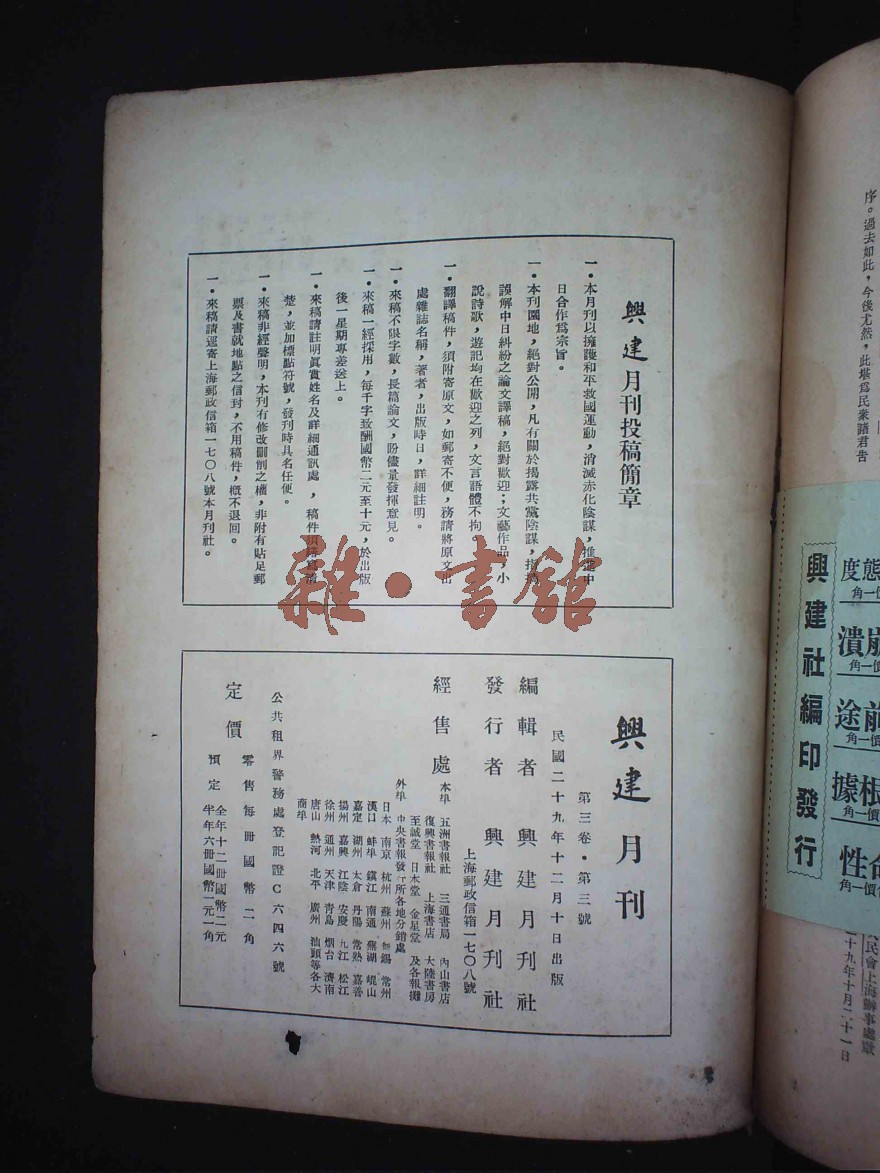 興建月刊投稿簡章
一・本月刊以擁護和平救國運動，消滅赤化陰謀，推進中
日合作爲宗旨。
一・本刊園地，絕對公開，凡有關於揭露共黨陰謀，指摘
誤解中日糾紛之論文譯稿，絕對歡迎；文藝作品，小
說詩歌，遊記均在歡迎之列，文言語體不拘。
一・翻譯稿件，須附寄原文，如郵寄不便，務請將原文出
處雜誌名稱，著者，出版時日，詳細註明。
一・來稿不限字數，長篇論文，盼儘量發揮意見。
一・來稿一經採用，每千字致酬國幣二元至十元，於出版
後一星期專差送上。
一・來稿請註明眞實姓名及詳細通訊處，稿件須繕寫清
楚，並加標點符號，發刊時具名任便。
一・來稿非經聲明，本刊有修改刪削之權，非附有貼足郵
票及書就地點之信封，不用稿件，槪不退回。
一・來稿請逕寄上海郵政信箱一七〇八號本月刊社。
雜・書館
興建月刊
第三卷・第三號
民國二十九年十二月十日出版
編輯者 興建月刊社
發行者 興建月刊社
上海郵政信箱一七〇八號
經售處
本埠 五洲書報社 三通書局 內山書店
復興書報社 上海書店 大陸書房
至誠堂 日本堂 金星堂 及各報攤
外埠 中央書報發行所各地分銷處
日本 南京 杭州 蘇州 無錫 常州
漢口 蚌埠 鎮江 南通 蕪湖 崐山
嘉定 湖州 太倉 丹陽 常熟 嘉善
揚州 嘉興 江陰 安慶 九江 松江
徐州 通州 天津 青島 烟台 濟南
唐山 熱河 北平 廣州 汕頭等各大
商埠
公共租界警務處登記證C六四六號
定價
零售每冊國幣二角
預定 全年十二冊國幣二元
半年六冊國幣一元一角
序。過去如此，今後尤然，此堪爲民衆諸君告
興建社編印發行
民會上海辦事處啟
十九年十月二十一日